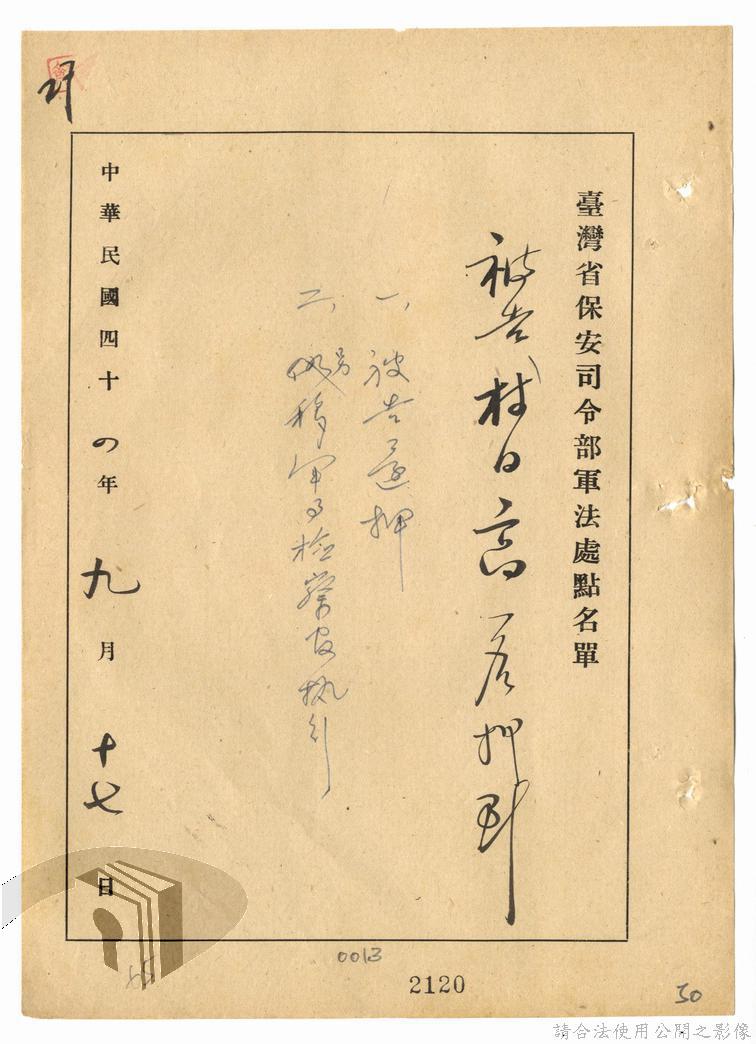 臺灣省保安司令部軍法處點名單
被告杜日高一名押到
一、被告還押
二、移軍事檢察官執行
中華民國四十四年九月十七日
0013
2120
50
請合法使用公開之影像